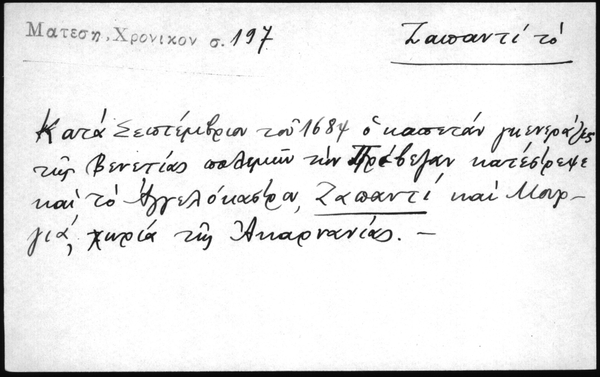 Ματεση, Χρονικον σ. 197
Ζαπαντί τὸ
Κατά Σεπτέμβριον τοῦ 1684 ὁ καπετάν γκενεράλες
τῆς Βενετίας πολεμῶν τὴν Πρέβεζαν κατέστρεψε
καὶ τὸ Ἀγγελόκαστρο, Ζαπαντί καὶ Μουρ-
γιά, χωρία τῆς Ἀκαρνανίας. –